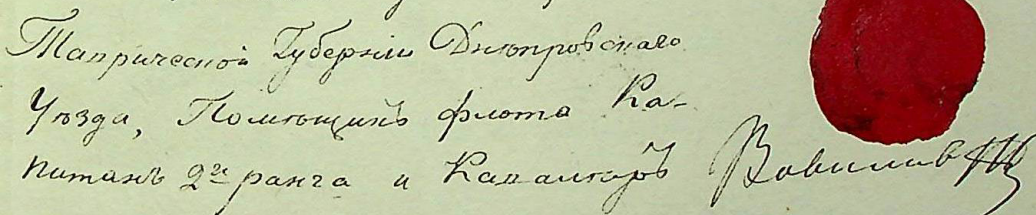 Таврической Губерніи Днѣпровскаго
Уѣзда, Помѣщикъ флота Ка-
питанъ 2го ранга и Кавалеръ